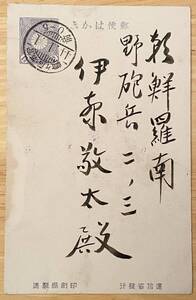 郵便はかき
朝鮮羅南
野砲兵二ノ三
敬太殿
遞信省發行
印刷局製造